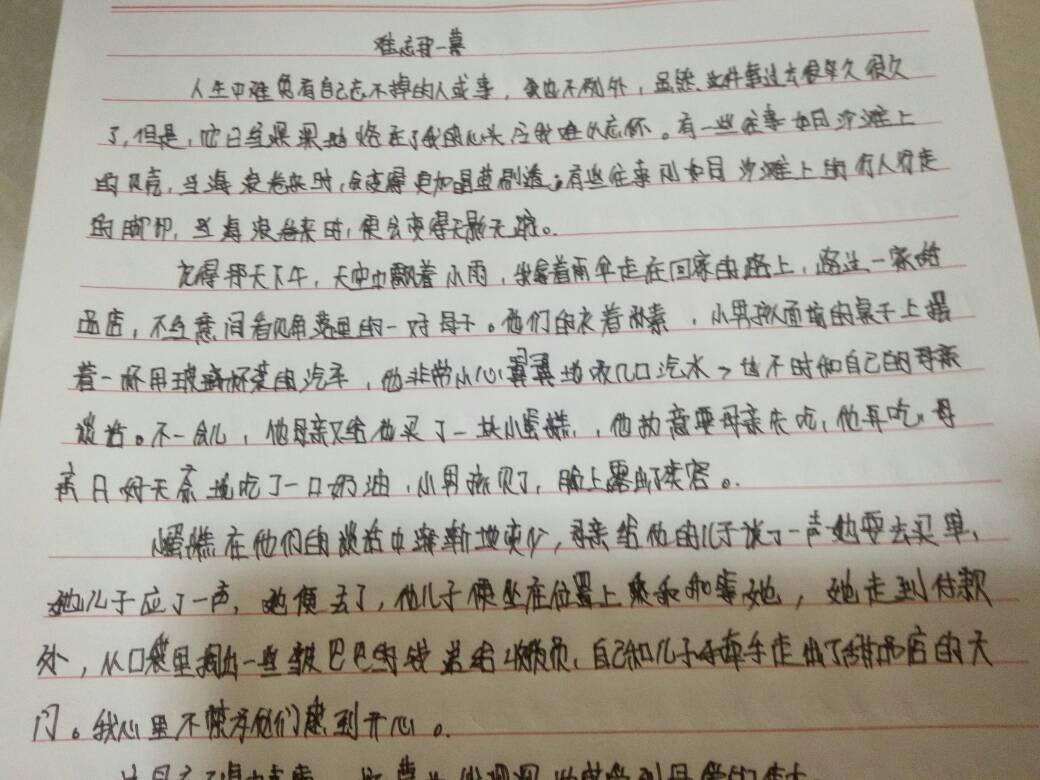 难忘那一幕
人生中难免有自己忘不掉的人或事，我也不例外，虽然这件事过去很久很久
了，但是，它日当深深地烙在了我的心头令我难以忘怀。有一些往事如同沙滩上
的贝壳，当海浪卷来时，会变得更加晶莹剔透；有些往事则如同沙滩上的行人行走
的脚印，当海浪卷来时，便会变得无影无踪。
记得那天下午，天空中飘着小雨，我撑着雨伞走在回家的路上，路过一家甜
品店，不经意间看见角落里的一对母子。他们的衣着朴素，小男孩面前的桌子上摆
着一杯用玻璃杯装的汽水，他非常小心翼翼地吸几口汽水，也不时和自己的母亲
谈话。不一会儿，他母亲又给他买了一块小蛋糕，他执意要母亲先吃，他再吃，母
亲只好无奈地吃了一口奶油，小男孩见了，脸上露出了笑容。
小蛋糕在他们的谈话中渐渐地变少，母亲给他的儿子谈了一声她要去买单，
她儿子应了一声，她便去了，他儿子便坐在位置上乖乖和等她，她走到付款
处，从口袋里掏出一些皱巴巴的钱递给收银员，自己和儿子手牵手走出了甜品店的大
门。我心里不禁为他们感到开心。